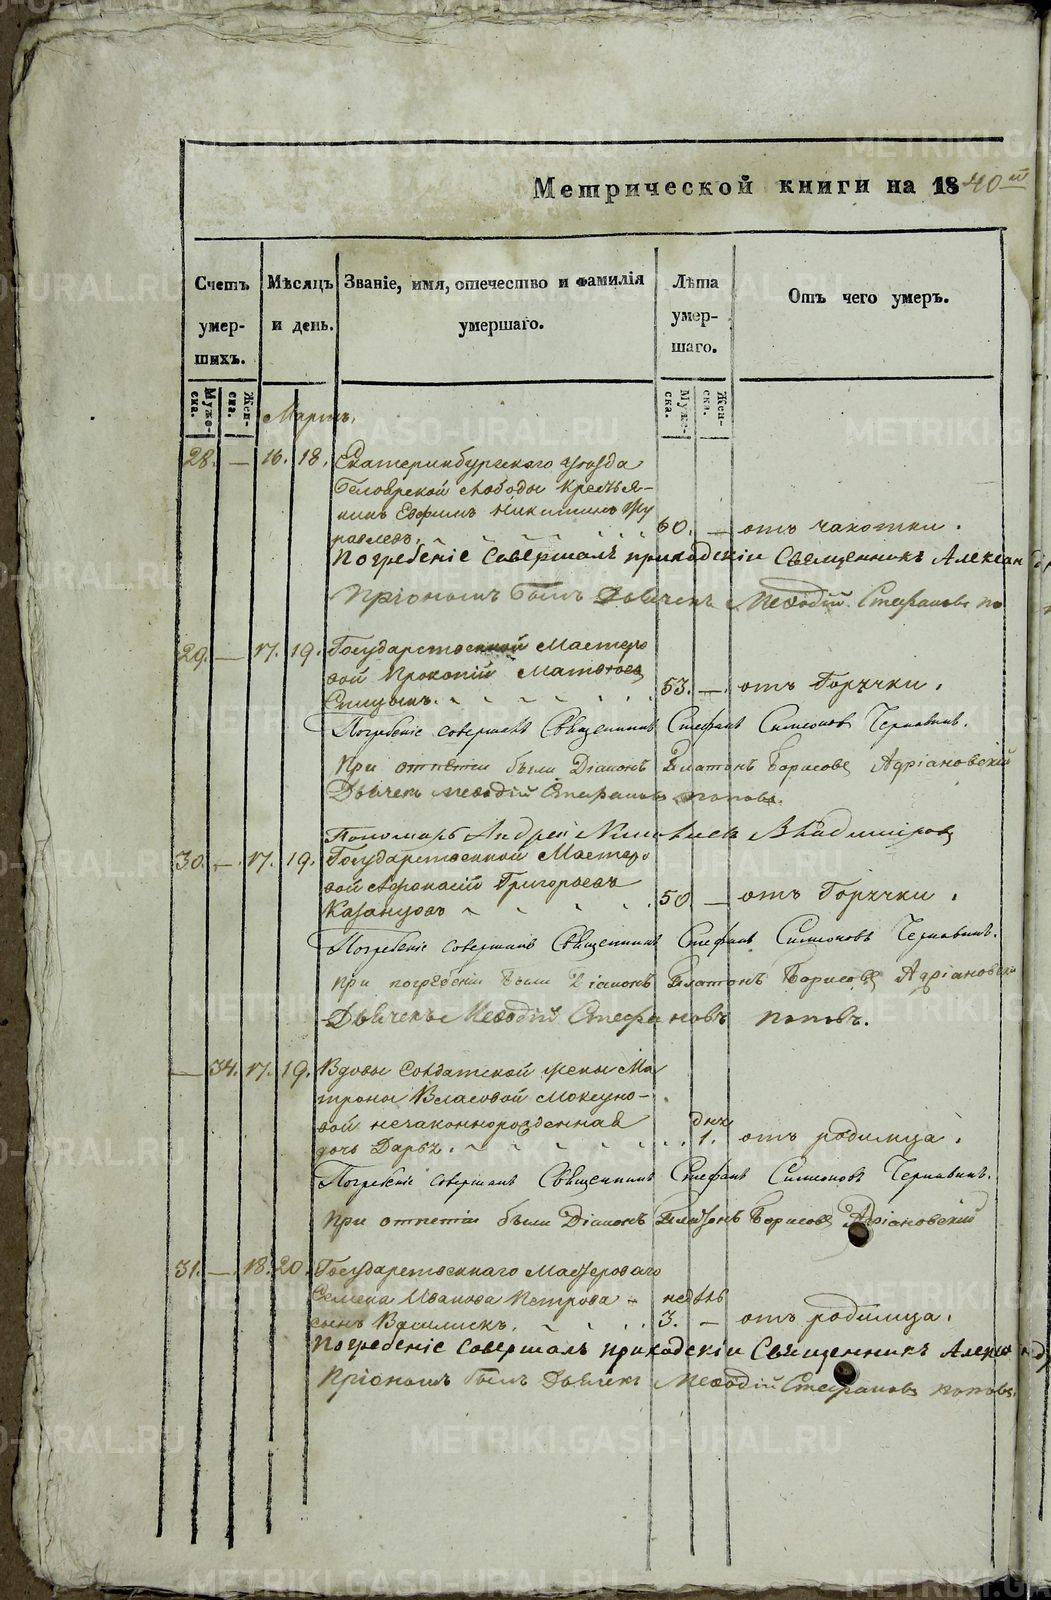 Метрической книги на 1840й
Счетъ умер- шихъ.
Мѣсяцъ и день.
Званіе, имя, отечество и фамилія умершаго.
Лѣта умер- шаго.
Отъ чего умеръ.
Муже- ска.
Жен- ска.
Муже- ска.
Жен- ска.
Мартъ.
28. — 16. 18. Екатеринбургскаго уѣзда
слободы крестья-
нинъ Ефимъ Никитинъ Жу
равлевъ. 60. — отъ чахотки.
Погребеніе совершалъ приходскій Священникъ Алексан
При ономъ былъ Дьячекъ Меѳодій Стефановъ По
29. — 17. 19. Государственной Мастеро
вой Прокопій Матвѣевъ
Спицынъ. 53. — отъ Горячки.
Погребеніе совершалъ Священникъ Стефанъ Симеоновъ Чернавинъ.
При отпетіи были Діаконъ Платонъ Борисовъ Адріановскій
Дьячекъ Меѳодій Стефановъ Поповъ.
Пономарь Андрей Владиміровъ
30. — 17. 19. Государственной Мастеро
вой Афонасій Григорьевъ
Казанцовъ 50. — отъ Горячки.
Погребеніе совершалъ Священникъ Стефанъ Симеоновъ Чернавинъ.
При погребеніи были Діаконъ Платонъ Борисовъ Адріановскій
Дьячекъ Меѳодій Стефановъ Поповъ.
— 34. 17. 19. Вдовы Солдатской жены Ма
троны Власовой Моксуно-
вой незаконнорожденная дня
дочь Дарья. 1. отъ родимца.
Погребеніе совершалъ Священникъ Стефанъ Симеоновъ Чернавинъ.
При отпетіи были Діаконъ Платонъ Борисовъ Адріановскій
31. — 18. 20. Государственнаго Мастероваго
Семена Иванова Петрова недѣль
сынъ Василискъ. 3. — отъ родимца.
Погребеніе совершалъ приходскій Священникъ Александ
При ономъ былъ Дьячекъ Меѳодій Стефановъ Поповъ.
METRIKI.GASO-URAL.RU